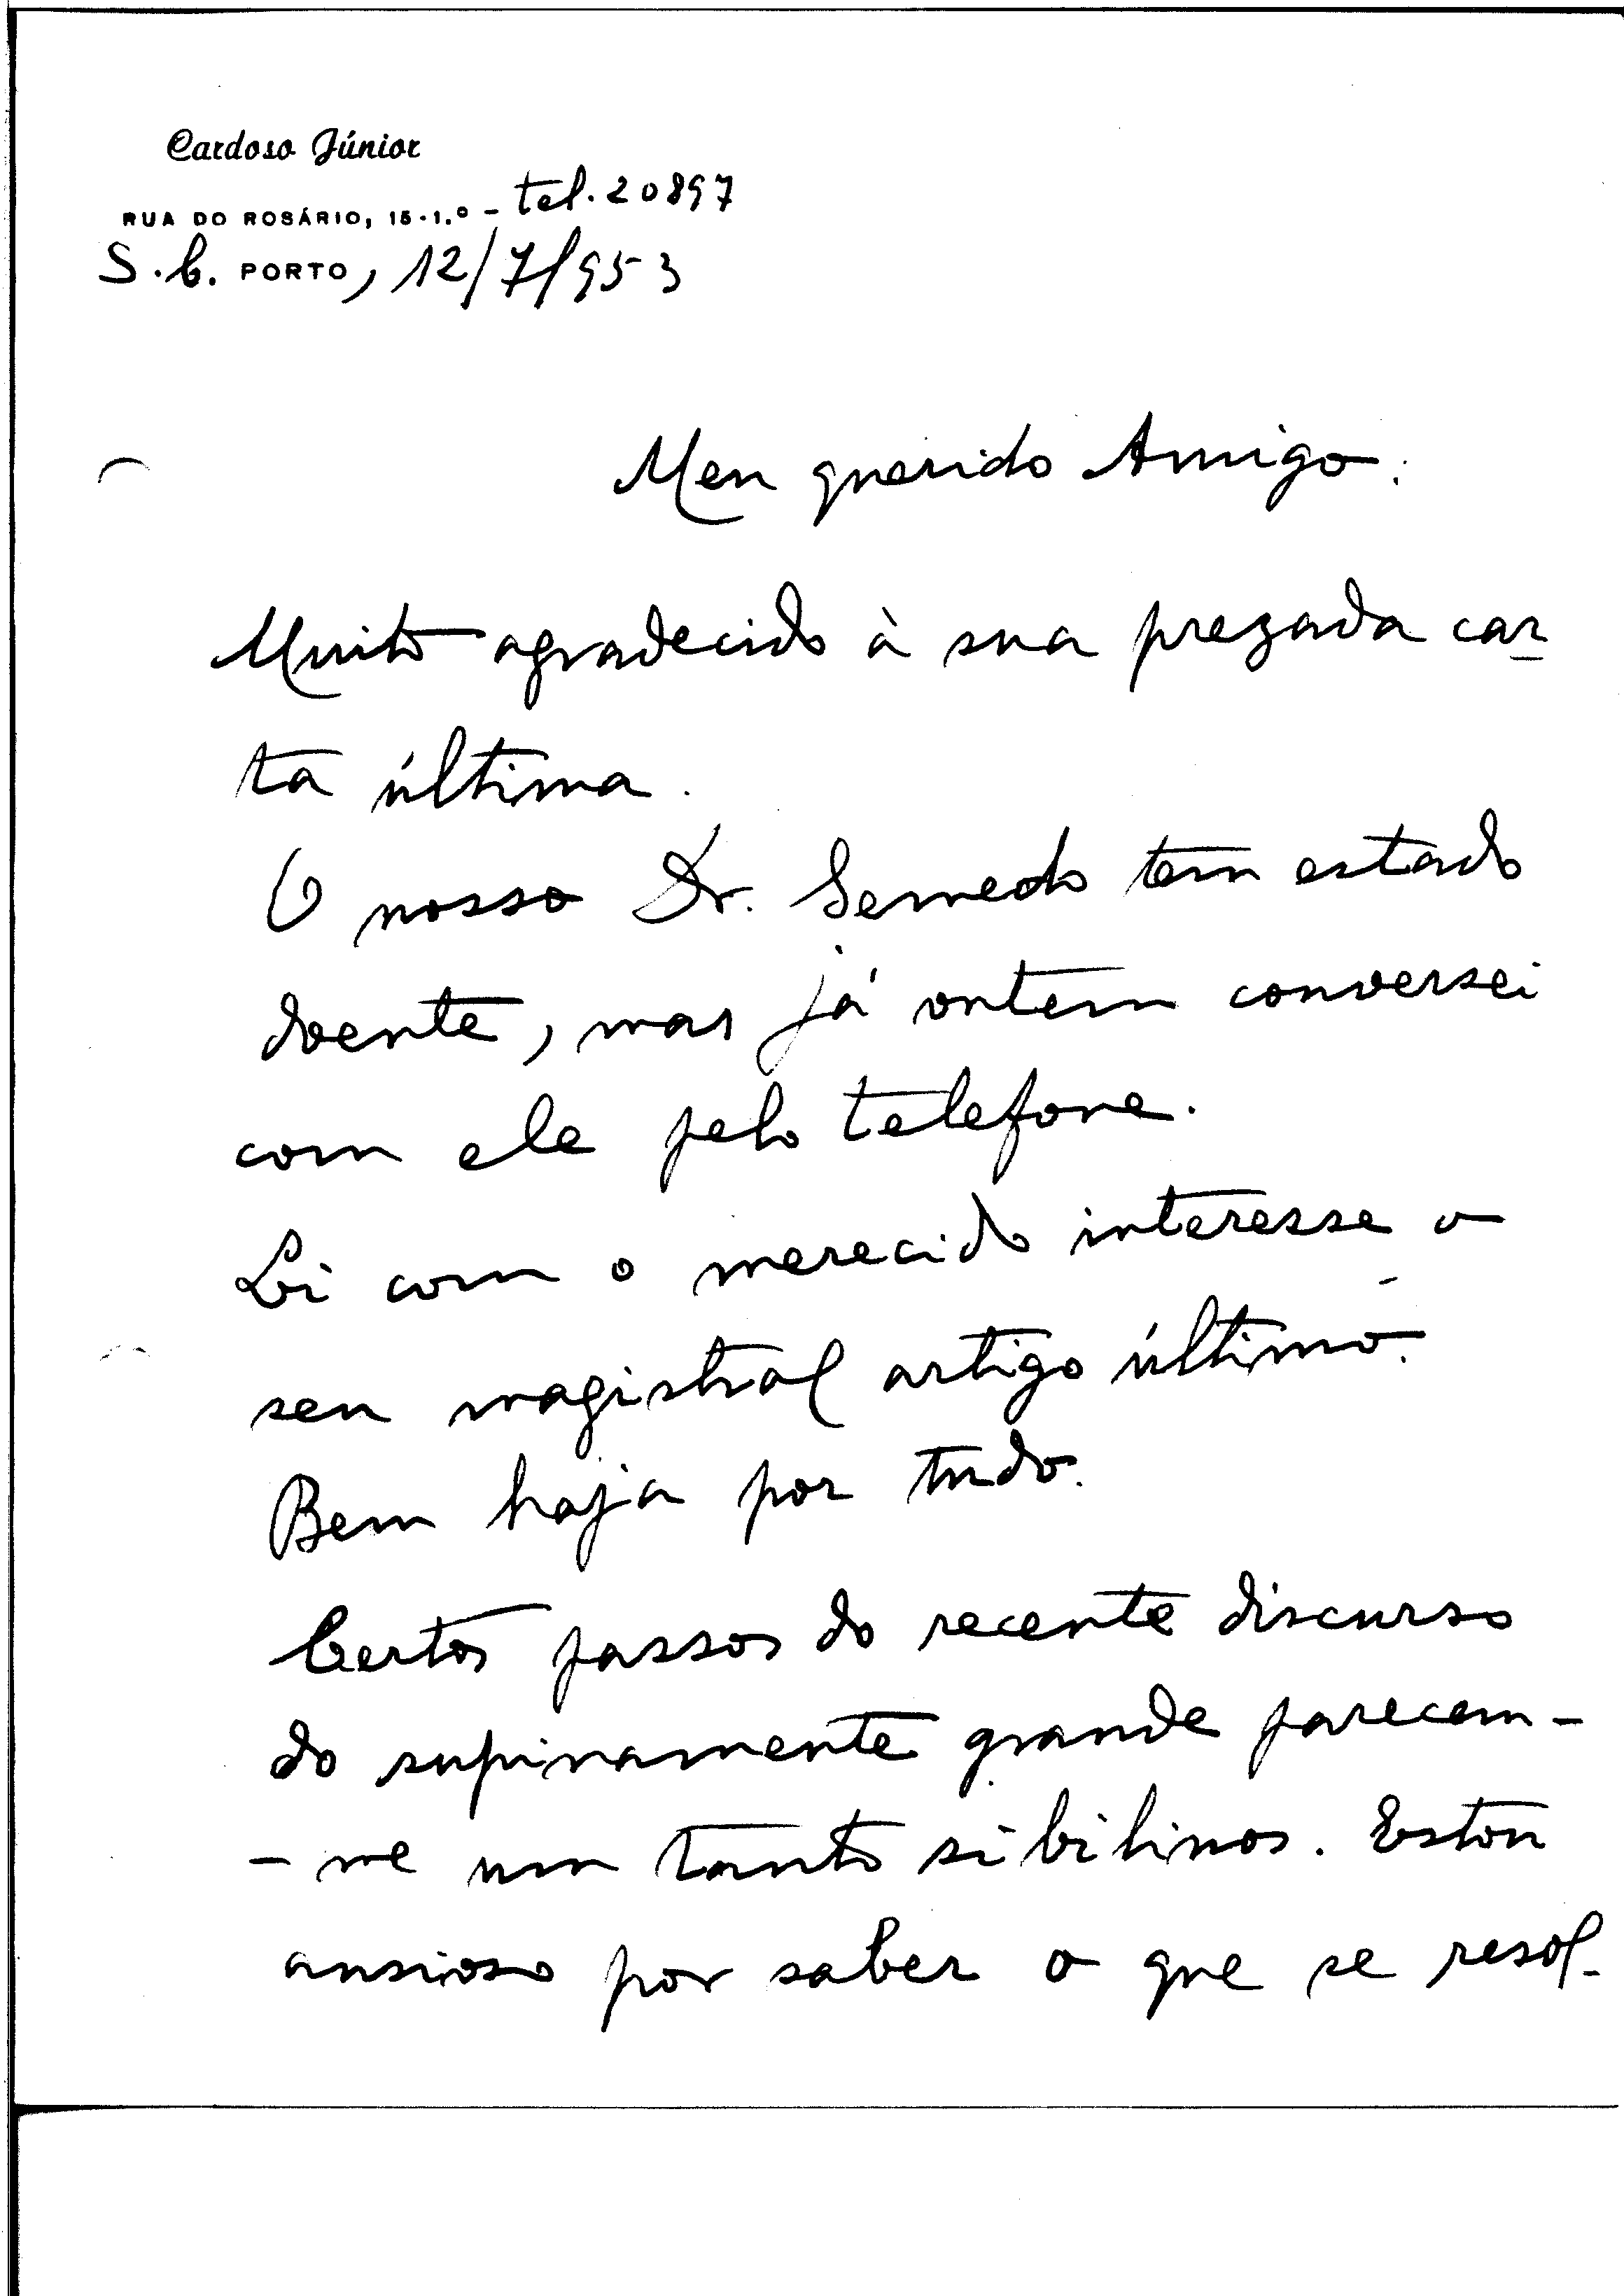 Cardoso Júnior
RUA DO ROSÁRIO, 15-1.º - tel. 20897
S.C. PORTO, 12/7/953
Meu querido Amigo:
Muito agradecido à sua prezada car-
ta última.
O nosso Dr. Semedo tem estado
doente, mas já ontem conversei
com ele pelo telefone.
Li com o merecido interesse o
seu magistral artigo último.
Bem haja por tudo.
Certos passos do recente discurso
do supinamente grande parecem-
-me um tanto sibilinos. Estou
ansioso por saber o que se resol-